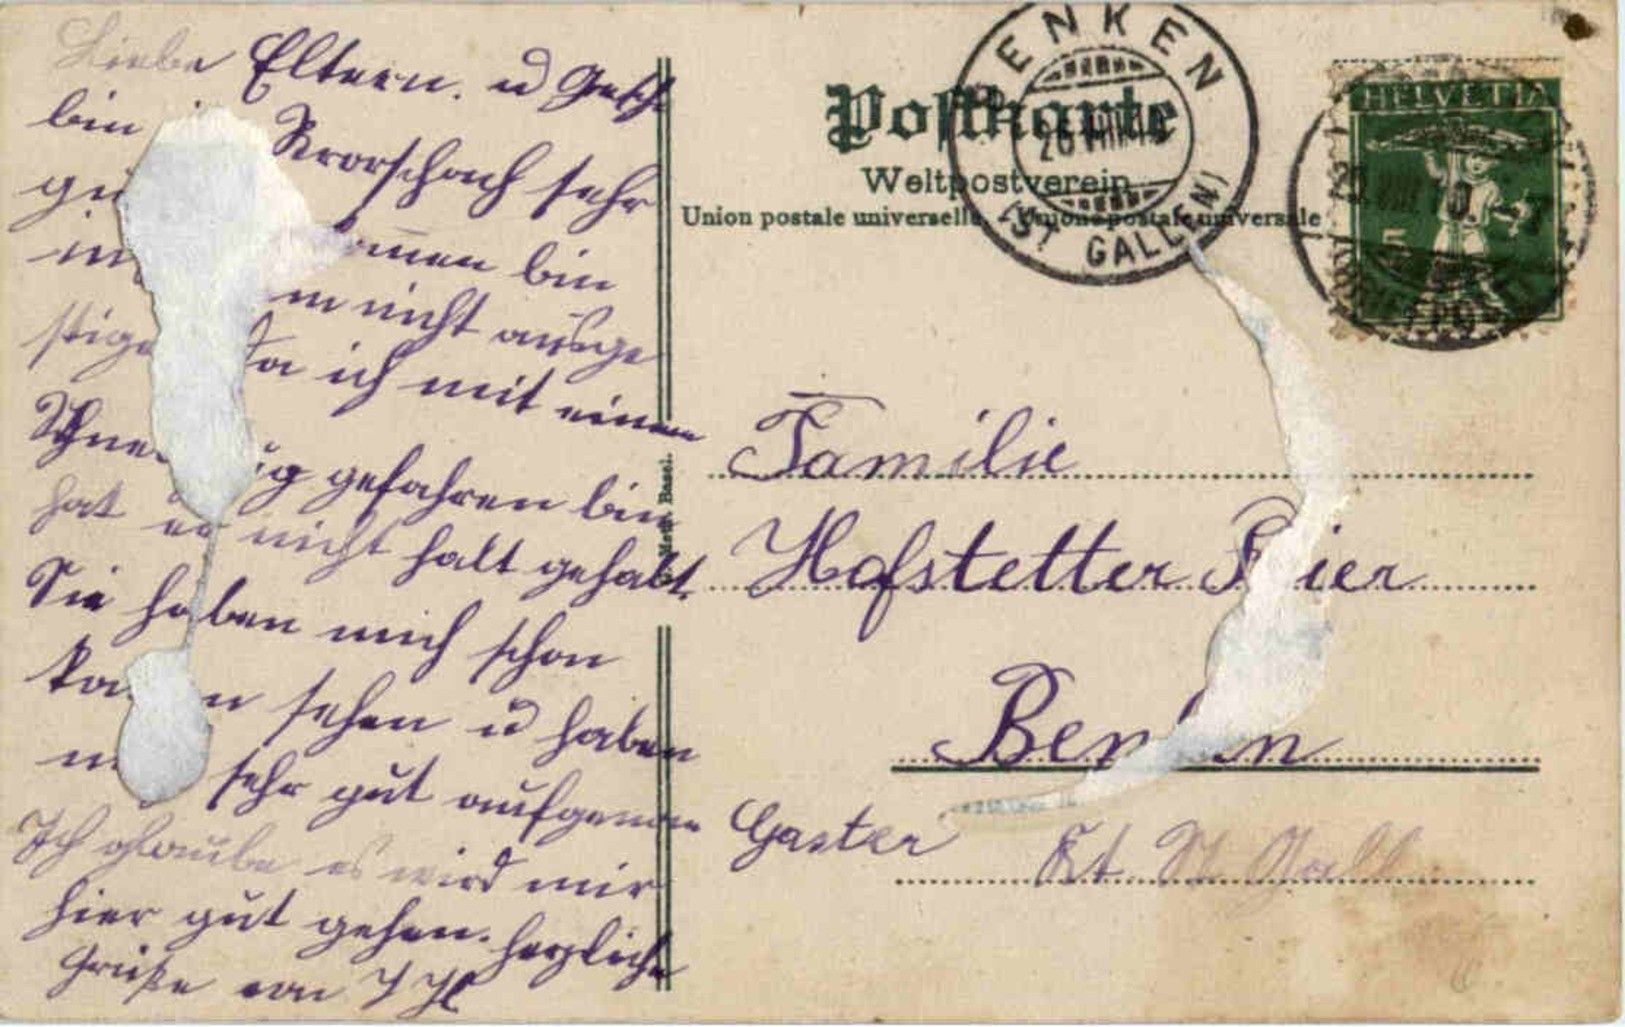 Liebe Eltern. u Gesch
bin Rorschach sehr
gu
men bin
nicht ausge
stige da ich mit einem
Schne ug gefahren bin
hat es nicht halt gehabt.
Sie haben mich schon
sehen u haben
sehr gut aufgenom
Ich glaube es wird mir
hier gut gehen. herzliche
Grüße von J H
Postkarte
Weltpostverein
Union postale universelle. – Unione postale universale
BENKEN
(ST GALLEN)
HELVETIA
5
Familie
Hofstetter
Ben en
Gaster Kt. St. Gall
Basel.